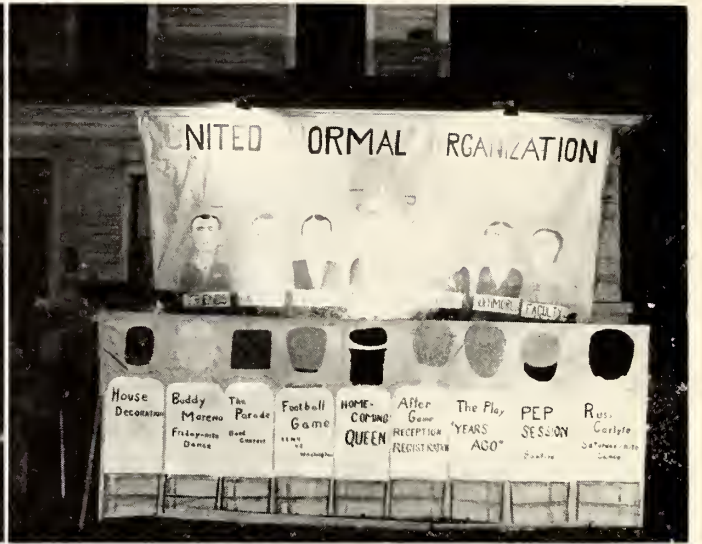 UNITED NORMAL ORGANIZATION
FRIENDS
FACULTY
House
Decoration
Buddy
Moreno
Friday-nite
Dance
The
Parade
Band
Football
Game
ISNU
vs
Washington
HOME-
COMING
QUEEN
After
Game
RECEPTION
REGISTRATION
The Play
"YEARS
AGO"
PEP
SESSION
Bonfire
Russ
Carlyle
Saturday-nite
Dance